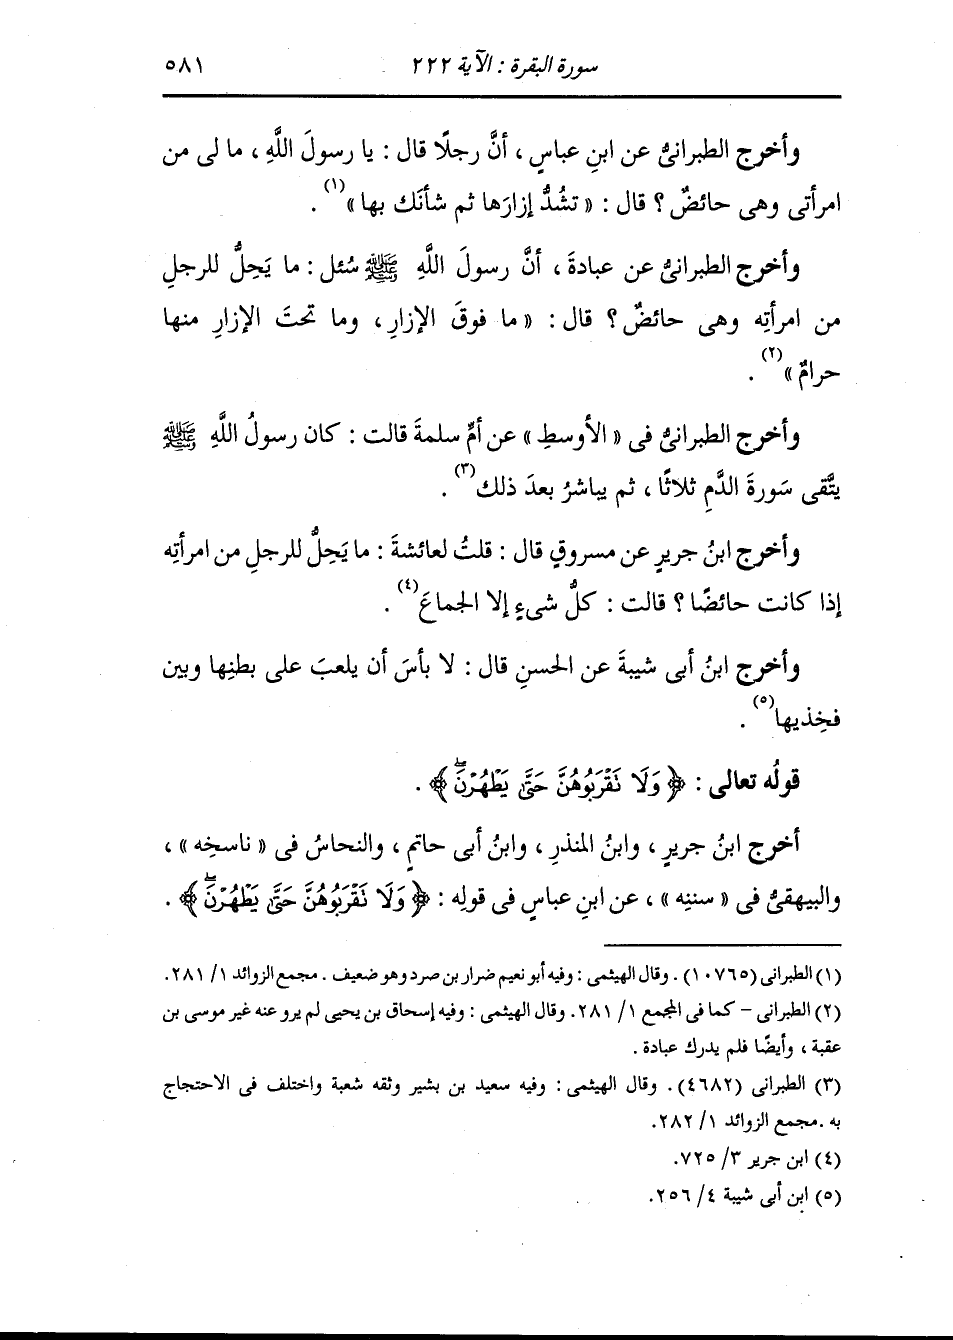 سورة البقرة : الآية ٢٢٢
٥٨١
وأخرج الطبرانىُّ عن ابنِ عباسٍ ، أنَّ رجلًا قال : يا رسولَ اللَّهِ ، ما لى من
امرأتى وهى حائضٌ ؟ قال : « تشُدُّ إزارَها ثم شأنَك بها »(١) .
وأخرج الطبرانىُّ عن عبادةَ ، أنَّ رسولَ اللَّهِ ﷺ سُئل : ما يَحِلُّ للرجلِ
من امرأتِه وهى حائضٌ ؟ قال : « ما فوقَ الإزارِ ، وما تحتَ الإزارِ منها
حرامٌ »(٢) .
وأخرج الطبرانىُّ فى « الأوسطِ » عن أمِّ سلمةَ قالت : كان رسولُ اللَّهِ ﷺ
يتَّقى سَورةَ الدَّمِ ثلاثًا ، ثم يباشرُ بعدَ ذلك(٣) .
وأخرج ابنُ جريرٍ عن مسروقٍ قال : قلتُ لعائشةَ : ما يَحِلُّ للرجلِ من امرأتِه
إذا كانت حائضًا ؟ قالت : كلُّ شىءٍ إلا الجماعَ(٤) .
وأخرج ابنُ أبى شيبةَ عن الحسنِ قال : لا بأسَ أن يلعبَ على بطنِها وبين
فخِذيها(٥) .
قولُه تعالى : ﴿ وَلَا نَقْرَبُوهُنَّ حَتَّىٰ يَطْهُرْنَۖ ﴾ .
أخرج ابنُ جريرٍ ، وابنُ المنذرِ ، وابنُ أبى حاتمٍ ، والنحاسُ فى « ناسخِه » ،
والبيهقىُّ فى « سننِه » ، عن ابنِ عباسٍ فى قولِه : ﴿ وَلَا نَقْرَبُوهُنَّ حَتَّىٰ يَطْهُرْنَۖ ﴾ .
(١) الطبرانى (١٠٧٦٥) . وقال الهيثمى : وفيه أبو نعيم ضرار بن صرد وهو ضعيف . مجمع الزوائد ١/ ٢٨١.
(٢) الطبرانى – كما فى المجمع ١/ ٢٨١. وقال الهيثمى : وفيه إسحاق بن يحيى لم يرو عنه غير موسى بن
عقبة ، وأيضًا فلم يدرك عبادة .
(٣) الطبرانى (٤٦٨٢). وقال الهيثمى : وفيه سعيد بن بشير وثقه شعبة واختلف فى الاحتجاج
به .مجمع الزوائد ١/ ٢٨٢.
(٤) ابن جرير ٣/ ٧٢٥.
(٥) ابن أبى شيبة ٤/ ٢٥٦.